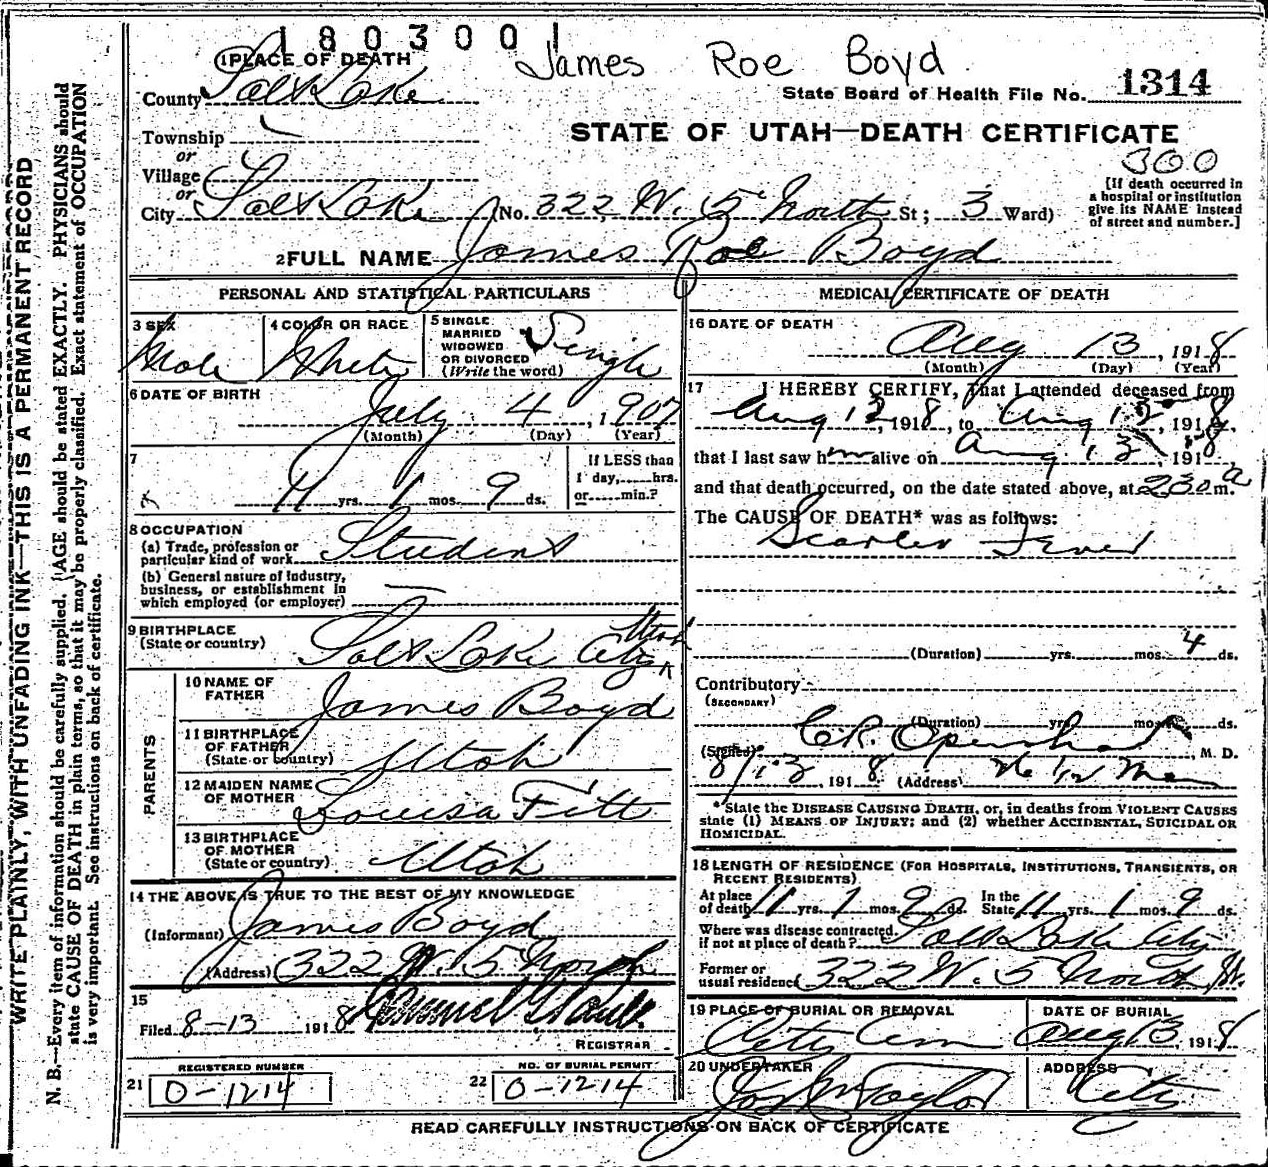 1803001
James Roe Boyd
1 PLACE OF DEATH
County Salt Lake
State Board of Health File No. 1314
Township
or
Village
or
STATE OF UTAH—DEATH CERTIFICATE
300
[If death occurred in a hospital or institution give its NAME instead of street and number.]
City Salt Lake (No. 322 W. 5 North St; 3 Ward)
2 FULL NAME James Roe Boyd
PERSONAL AND STATISTICAL PARTICULARS
3 SEX Male
4 COLOR OR RACE White
5 SINGLE MARRIED WIDOWED OR DIVORCED (Write the word) Single
6 DATE OF BIRTH July 4, 1907
(Month) (Day) (Year)
7
11 yrs. 1 mos. 9 ds.
If LESS than 1 day,......hrs. or......min.?
8 OCCUPATION
(a) Trade, profession or particular kind of work Student
(b) General nature of industry, business, or establishment in which employed (or employer)
9 BIRTHPLACE (State or country) Salt Lake City Utah
PARENTS
10 NAME OF FATHER James Boyd
11 BIRTHPLACE OF FATHER (State or country) Utah
12 MAIDEN NAME OF MOTHER Louisa Fitt
13 BIRTHPLACE OF MOTHER (State or country) Utah
14 THE ABOVE IS TRUE TO THE BEST OF MY KNOWLEDGE
(Informant) James Boyd
(Address) 322 W. 5 North
15
Filed 8-13 1918
REGISTRAR
REGISTERED NUMBER
21 0-1214
NO. OF BURIAL PERMIT
22 0-1214
MEDICAL CERTIFICATE OF DEATH
16 DATE OF DEATH
Aug 13, 1918
(Month) (Day) (Year)
17 I HEREBY CERTIFY, That I attended deceased from
Aug 12, 1918, to Aug 13, 1918,
that I last saw him alive on Aug 13, 1918,
and that death occurred, on the date stated above, at 230 a m.
The CAUSE OF DEATH* was as follows:
Scarlet Fever
(Duration) yrs. mos. 4 ds.
Contributory
(SECONDARY)
(Duration) yrs. mos. ds.
(Signed) C.R. M. D.
8/13, 1918 (Address)
*State the DISEASE CAUSING DEATH, or, in deaths from VIOLENT CAUSES
state (1) MEANS OF INJURY; and (2) whether ACCIDENTAL, SUICIDAL OR
HOMICIDAL.
18 LENGTH OF RESIDENCE (FOR HOSPITALS, INSTITUTIONS, TRANSIENTS, OR
RECENT RESIDENTS)
At place of death 11 yrs. 1 mos. 9 ds. In the State 11 yrs. 1 mos. 9 ds.
Where was disease contracted, if not at place of death? Salt Lake City
Former or usual residence 322 W. 5 North St.
19 PLACE OF BURIAL OR REMOVAL City Cem
DATE OF BURIAL Aug 13, 1918
20 UNDERTAKER Jos Taylor
ADDRESS City
READ CAREFULLY INSTRUCTIONS ON BACK OF CERTIFICATE
WRITE PLAINLY, WITH UNFADING INK—THIS IS A PERMANENT RECORD
N. B.—Every item of information should be carefully supplied. AGE should be stated EXACTLY. PHYSICIANS should
state CAUSE OF DEATH in plain terms, so that it may be properly classified. Exact statement of OCCUPATION
is very important. See instructions on back of certificate.